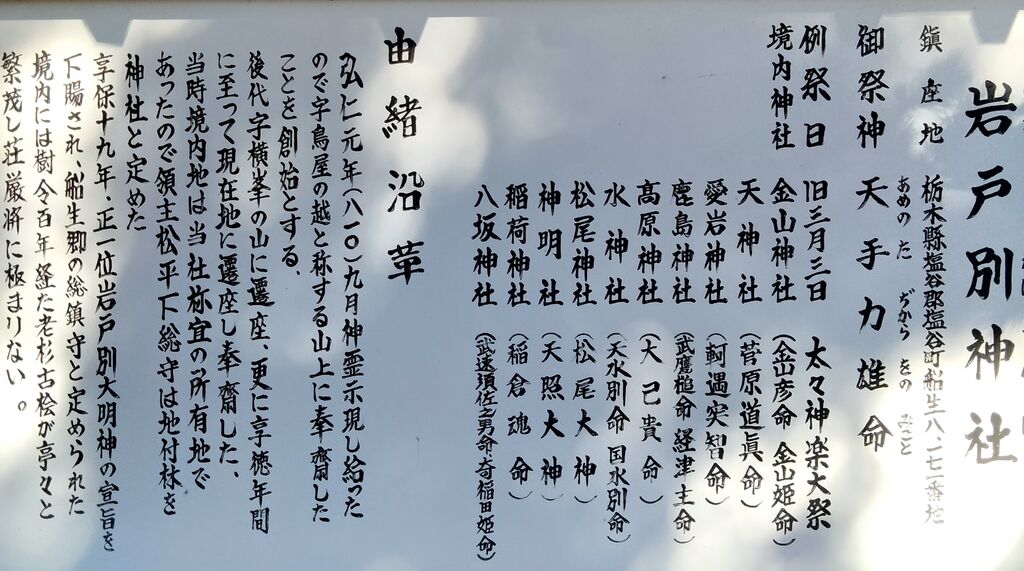 岩戸別神社
鎭座地 栃木縣塩谷郡塩谷町船生一八、一七二番地
あめの た ぢから をの みこと
御祭神 天手力雄命
例祭日 旧三月三日 太々神楽大祭
境内神社 金山神社 (金山彦命 金山姫命)
天神社 (菅原道眞命)
愛岩神社 (軻遇突智命)
鹿島神社 (武鷹槌命 経津主命)
高原神社 (大己貴命)
水神社 (天水別命 国水別命)
松尾神社 (松尾大神)
神明社 (天照大神)
稲荷神社 (稲倉魂命)
八坂神社 (武速須佐之男命 奇稲田姫命)
由緒沿革
弘仁元年(八一〇)九月神霊示現し給った
ので字鳥屋の越と称する山上に奉齋した
ことを創始とする、
後代字横峯の山に遷座、更に享徳年間
に至って現在地に遷座し奉齋した、
当時境内地は当社祢宜の所有地で
あったので領主松平下総守は地付林を
神社と定めた
享保十九年、正一位岩戸別大明神の宣旨を
下賜され、船生郷の総鎮守と定められた
境内には樹令百年経た老杉古桧が亭々と
繁茂し荘厳将に極まりない。